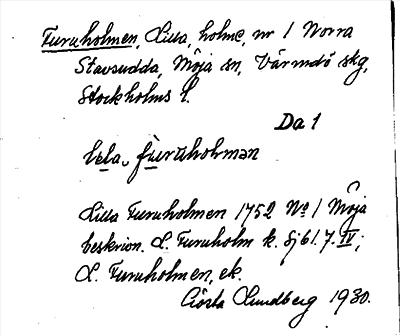 Furuholmen, Lilla, holme, nr 1 Norra
Stavsudda, Möja sn, Värmdö skg,
Stockholms l.
Da 1
lɛla fu̇ruholmən
Lilla Furuholmen 1752 No 1 Möja
beskrivn. L. Furuholm k. Sjö 61.7.IV;
L. Furuholmen, ek.
Gösta Lundberg 1930.